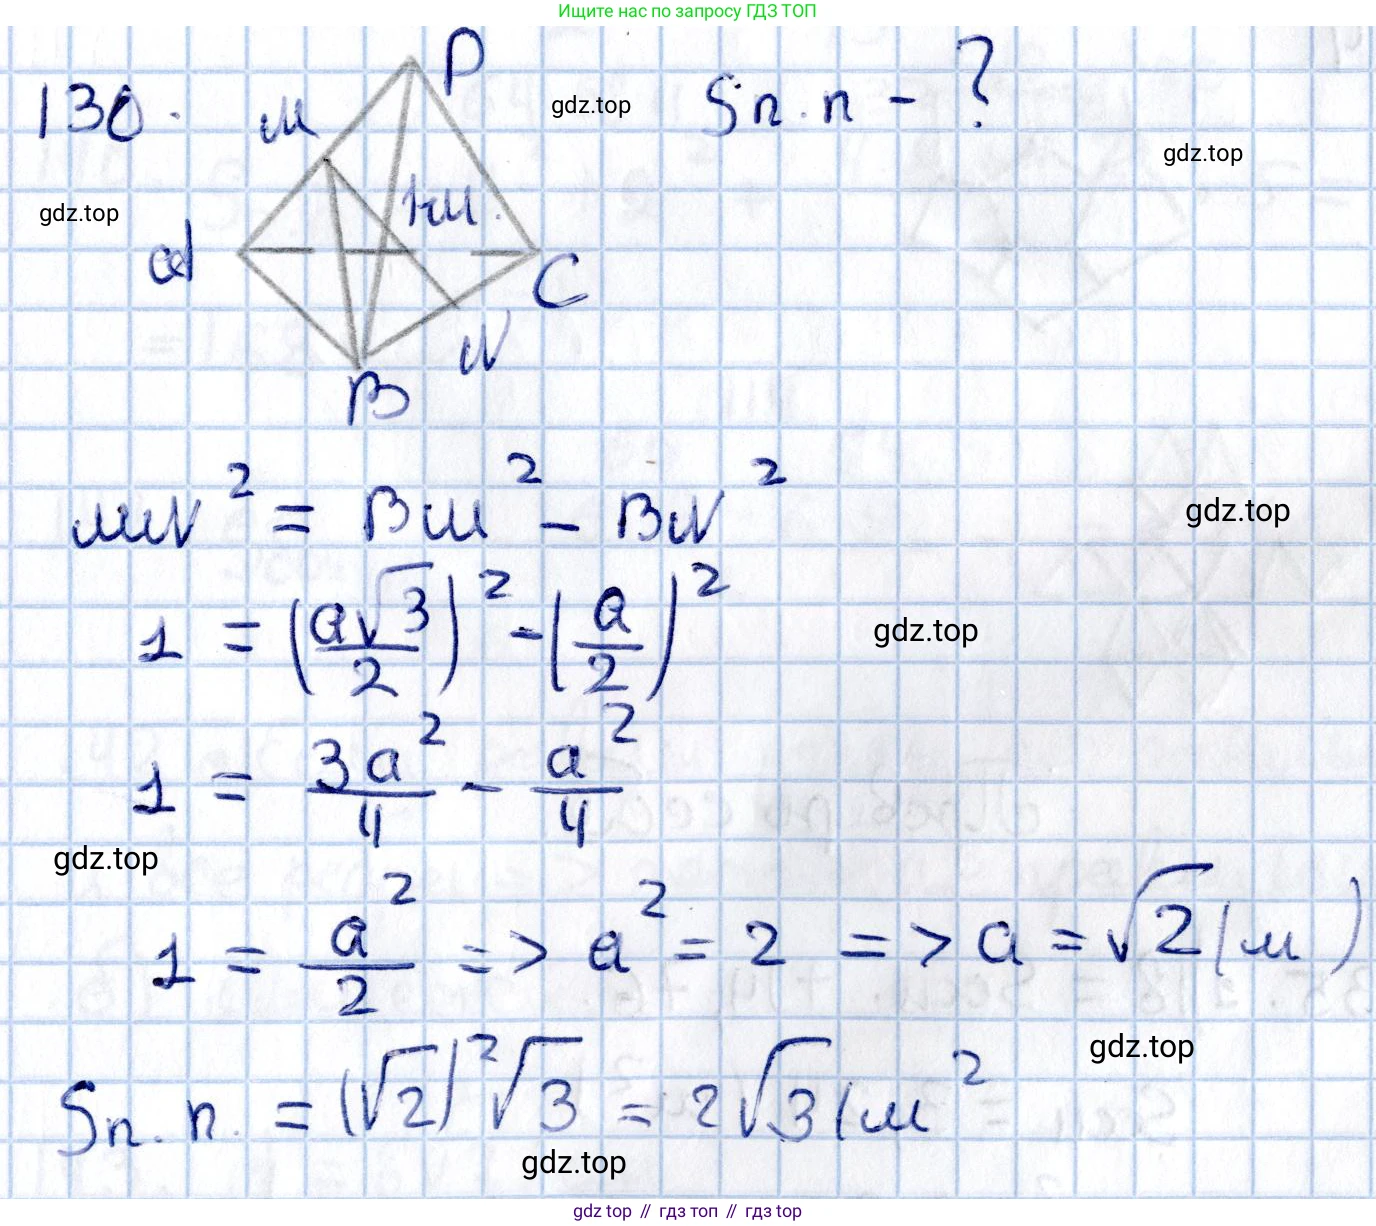 Ищите нас по запросу ГДЗ ТОП
130. P Sп.п - ?
M gdz.top
gdz.top
1 м.
gdz.top
A C
N
B
MN² = BM² - BN²
gdz.top
1 = (a√3/2)² - (a/2)²
gdz.top
1 = 3a²/4 - a²/4
gdz.top
1 = a²/2 => a² = 2 => a = √2 (м)
gdz.top
Sп.п. = (√2)²√3 = 2√3 (м²
gdz.top
gdz top // гдз топ // гдз top